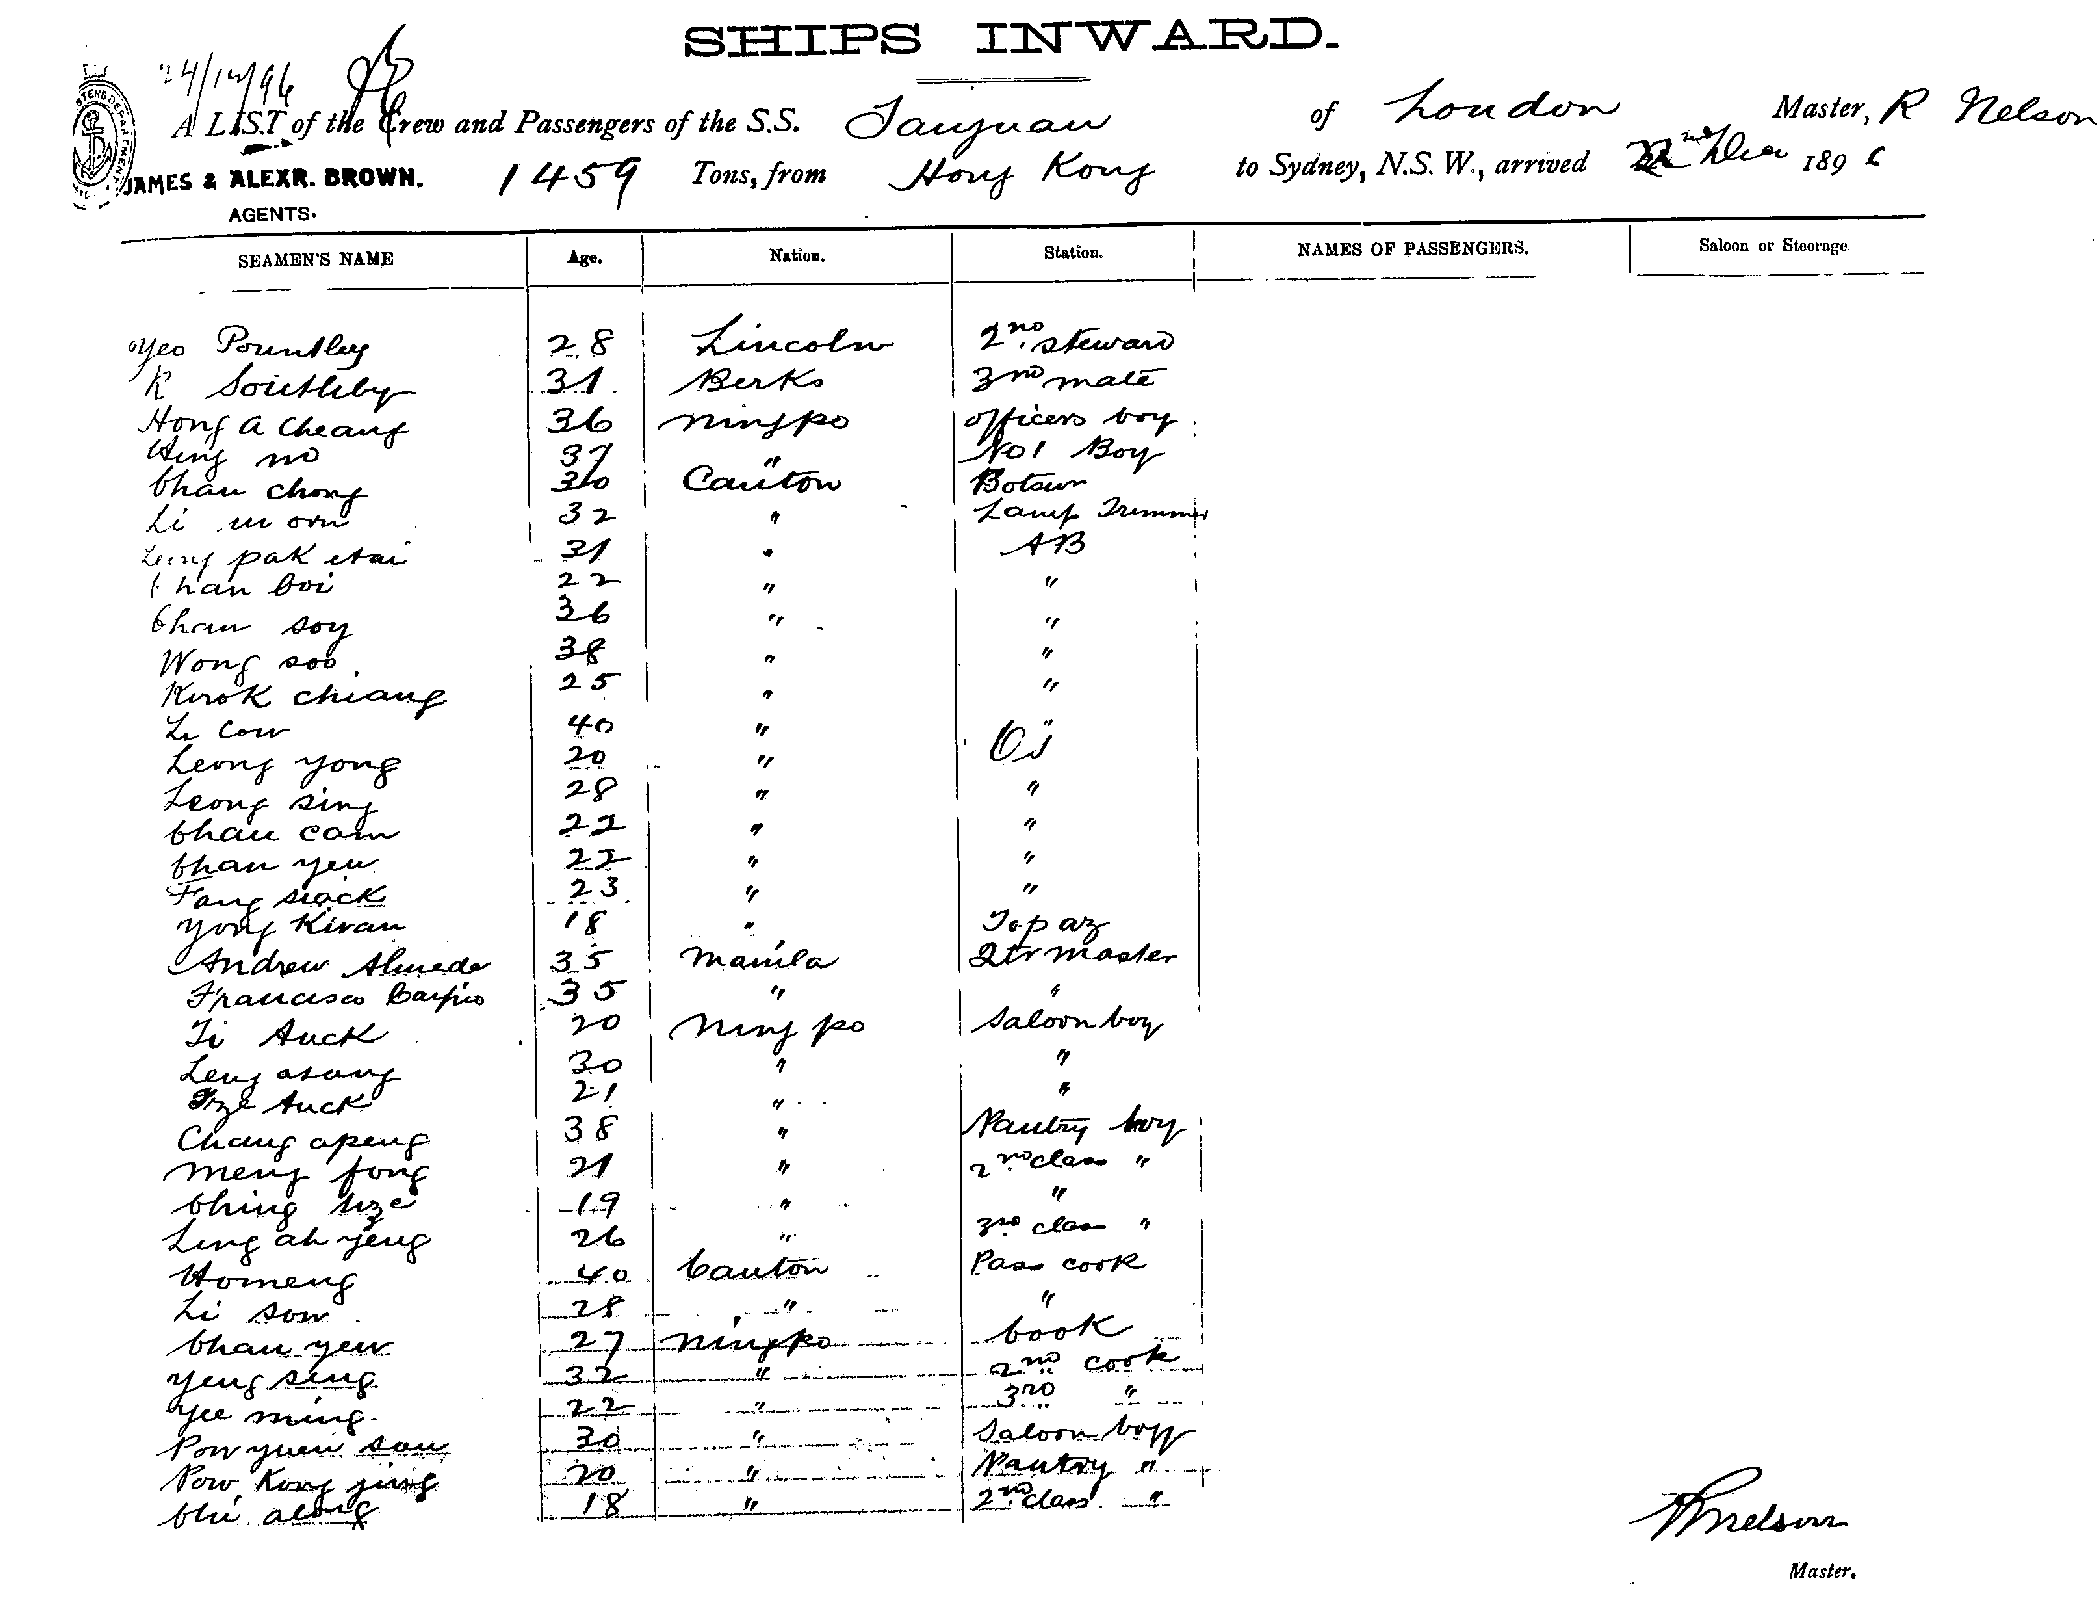 SHIPS INWARD.
24/12/96
A LIST of the Crew and Passengers of the S.S. Taiyuan of London Master, R Nelson
JAMES & ALEXR. BROWN. 1459 Tons, from Hong Kong to Sydney, N.S.W., arrived 22nd Dec 1896
AGENTS.
SEAMEN'S NAME Age. Nation. Station. NAMES OF PASSENGERS. Saloon or Steerage
Geo Pountley 28 Lincoln 2nd steward
R Southby 31 Berks 3rd mate
Hong a Cheang 36 Ningpo officers boy
Hing no 37 " No 1 Boy
Chan Chong 30 Canton Botswn
Li moon 32 " Lamp Trimmer
Leong pak 31 " AB
Chan Coi 22 " "
Chan soy 36 " "
Wong soo 38 " "
Kwok chiang 25 " "
Li Cow 40 " "
Leong yong 20 " OS
Leong sing 28 " "
Chan cam 22 " "
Chan yeu 22 " "
Fang siack 23 " "
Yong Kwan 18 " Topaz
Andrew Almeda 35 Manila Qtr master
Francisco Carpio 35 " "
Ti Auck 20 Ningpo Saloon boy
Leng asang 30 " "
Auck 21 " "
Chang apeng 38 " Pantry boy
Meng fong 21 " 2nd class "
Ching sze 19 " "
Ling ah yeng 26 " 3rd class "
Homeng 40 Canton Pass cook
Li son 28 " "
Chan yew 27 Ningpo Cook
Yeng seng 32 " 2nd cook
Yee ming 22 " 3rd "
Pow yuen sau 30 " Saloon boy
Pow Kong jing 20 " Pantry "
Chi along 18 " 2nd class "
R Nelson
Master.